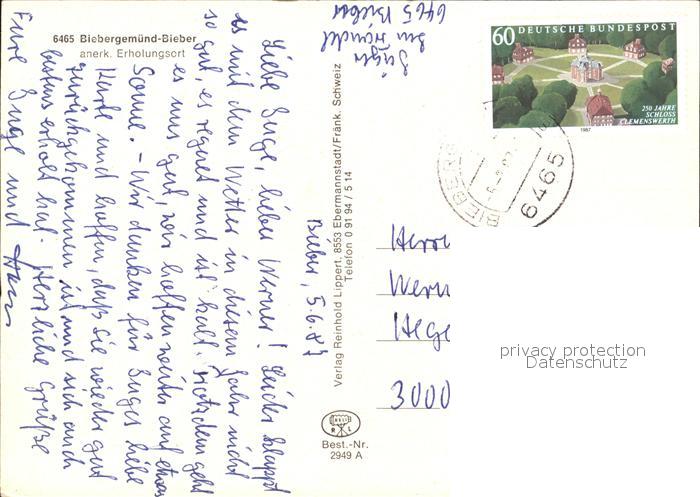 6465 Biebergemünd-Bieber
anerk. Erholungsort
Jäger
Im Gründel
6465 Bieber
Bieber, 5.6.87
Liebe Inge, lieber Werner! Leider klappt
es mit dem Wetter in diesem Jahr nicht
so gut, es regnet und ist kalt. Trotzdem geht
es uns gut, wir hoffen weiter auf etwas
Sonne. - Wir danken für Inges liebe
Karte und hoffen, daß sie wieder gut
zurückgekommen ist und sich auch
bestens erholt hat. Herzliche Grüße
Eure Inge und Hans
Verlag Reinhold Lippert, 8553 Ebermannstadt/Fränk. Schweiz
Telefon 0 91 94 / 5 14
R L
Best.-Nr.
2949 A
60 DEUTSCHE BUNDESPOST
250 JAHRE
SCHLOSS
CLEMENSWERTH
1987
6465
Herrn
Wern
Hege
3000
privacy protection
Datenschutz